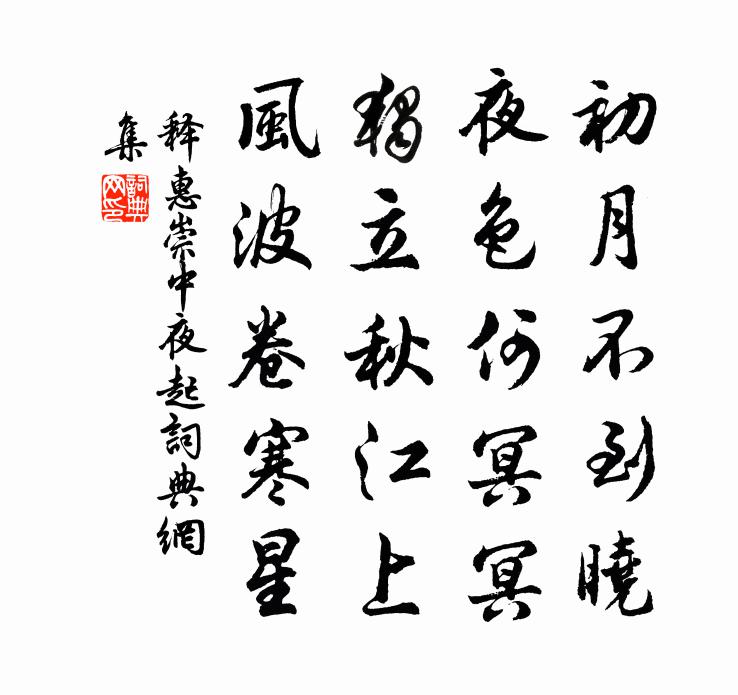 初月不到曉
夜色何冥冥
獨立秋江上
風波卷寒星
释惠崇中夜起詞典網
集
詞典
网印